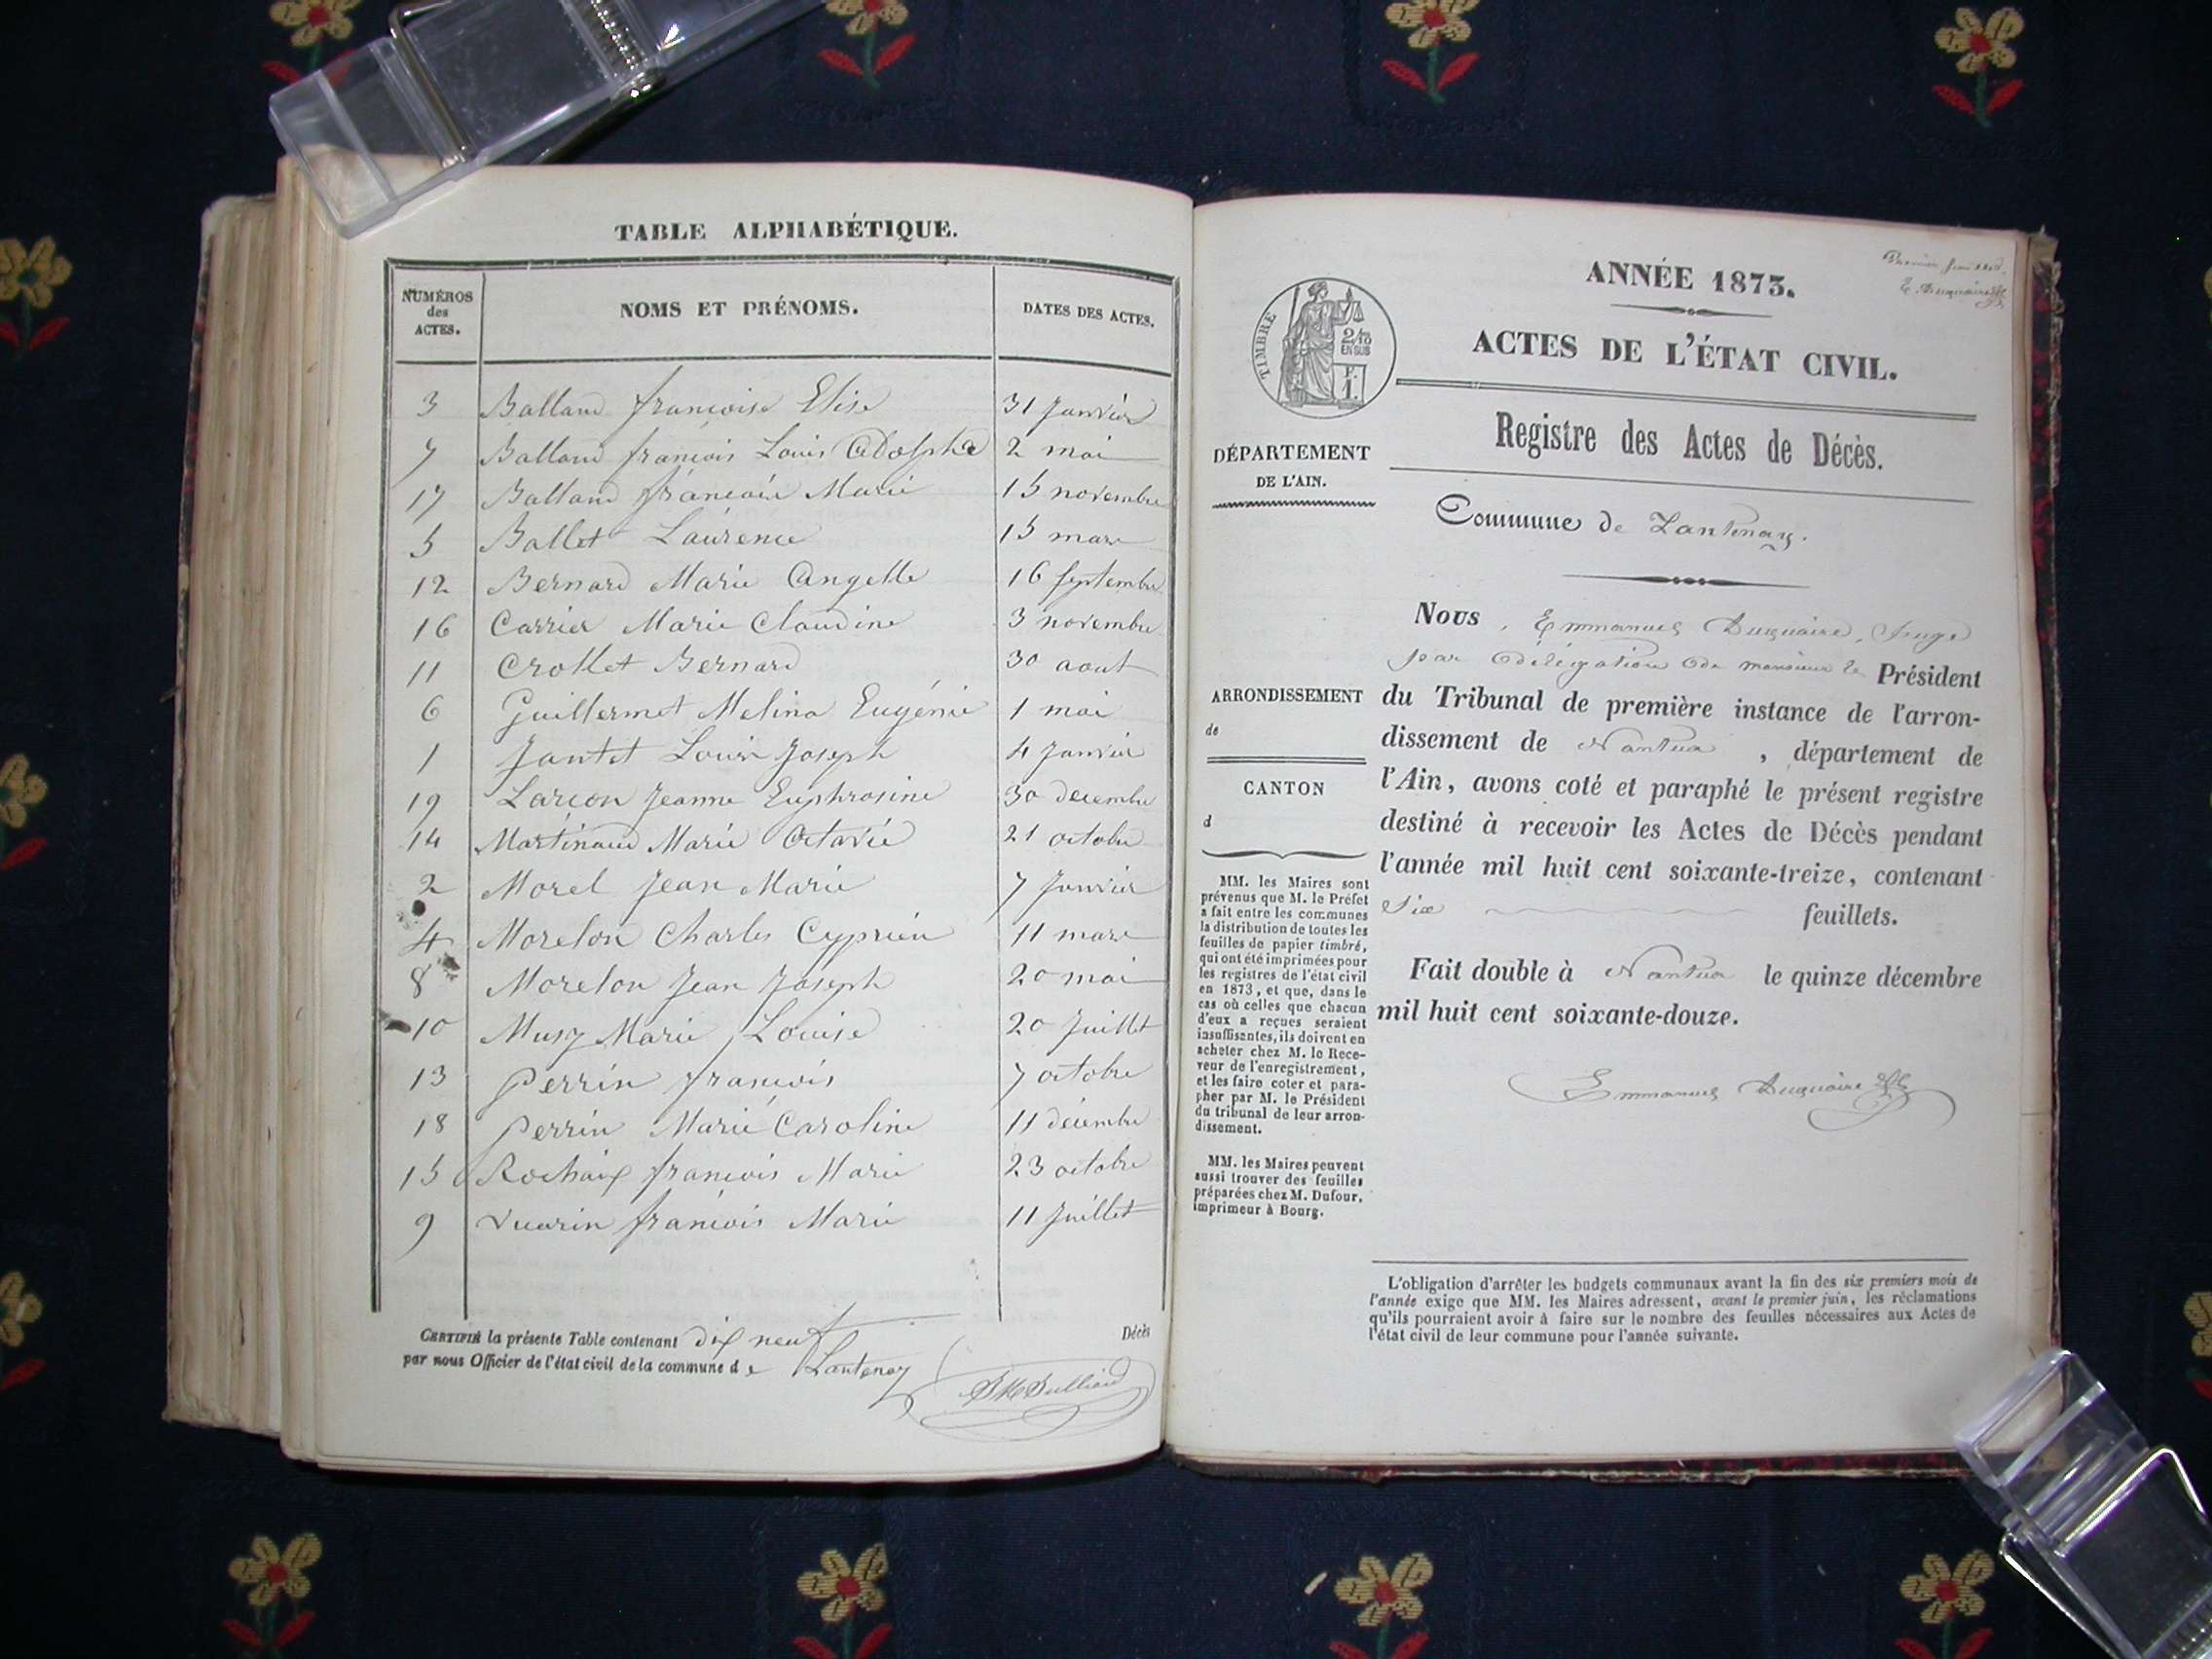 TABLE ALPHABÉTIQUE.
NUMÉROS
des
ACTES.
NOMS ET PRÉNOMS.
DATES DES ACTES.
3 Balland françoise Elise 31 Janvier
7 Balland françois Louis Adolphe 2 mai
17 Balland françoise Marie 15 novembre
5 Ballet Laurence 15 mars
12 Bernard Marie Angelle 16 septembre
16 Carrier Marie Claudine 3 novembre
11 Crollet Bernard 30 aout
6 Guillermet Melina Eugénie 1 mai
1 Jantet Louis Joseph 4 Janvier
19 Larçon Jeanne Euphrosine 30 decembre
14 Martinand Marie Octavie 21 octobre
2 Morel Jean Marie 7 Janvier
4 Morelon Charles Cyprien 11 mars
8 Morelon Jean Joseph 20 mai
10 Musy Marie Louise 20 Juillet
13 Perrin françois 7 octobre
18 Perrin Marie Caroline 11 décembre
15 Rochaix françois Marie 23 octobre
9 Vuarin françois Marie 11 Juillet
CERTIFIÉ la présente Table contenant dix neuf Décès
par nous Officier de l'état civil de la commune de Lantenay
ANNÉE 1873.
ACTES DE L'ÉTAT CIVIL.
TIMBRE
2/10
EN SUS
F.
1.
Registre des Actes de Décès.
DÉPARTEMENT
DE L'AIN.
Commune de Lantenay.
Nous, Emmanuel Duquaire, Juge
par délégation de monsieur le Président
du Tribunal de première instance de l'arron-
dissement de Nantua, département de
l'Ain, avons coté et paraphé le présent registre
destiné à recevoir les Actes de Décès pendant
l'année mil huit cent soixante-treize, contenant
six feuillets.
Fait double à Nantua le quinze décembre
mil huit cent soixante-douze.
Emmanuel Duquaire
ARRONDISSEMENT
de
CANTON
d
MM. les Maires sont
prévenus que M. le Préfet
a fait entre les communes
la distribution de toutes les
feuilles de papier timbré,
qui ont été imprimées pour
les registres de l'état civil
en 1873, et que, dans le
cas où celles que chacun
d'eux a reçues seraient
insuffisantes, ils doivent en
acheter chez M. le Rece-
veur de l'enregistrement,
et les faire coter et para-
pher par M. le Président
du tribunal de leur arron-
dissement.
MM. les Maires peuvent
aussi trouver des feuilles
préparées chez M. Dufour,
imprimeur à Bourg.
L'obligation d'arrêter les budgets communaux avant la fin des six premiers mois de
l'année exige que MM. les Maires adressent, avant le premier juin, les réclamations
qu'ils pourraient avoir à faire sur le nombre des feuilles nécessaires aux Actes de
l'état civil de leur commune pour l'année suivante.